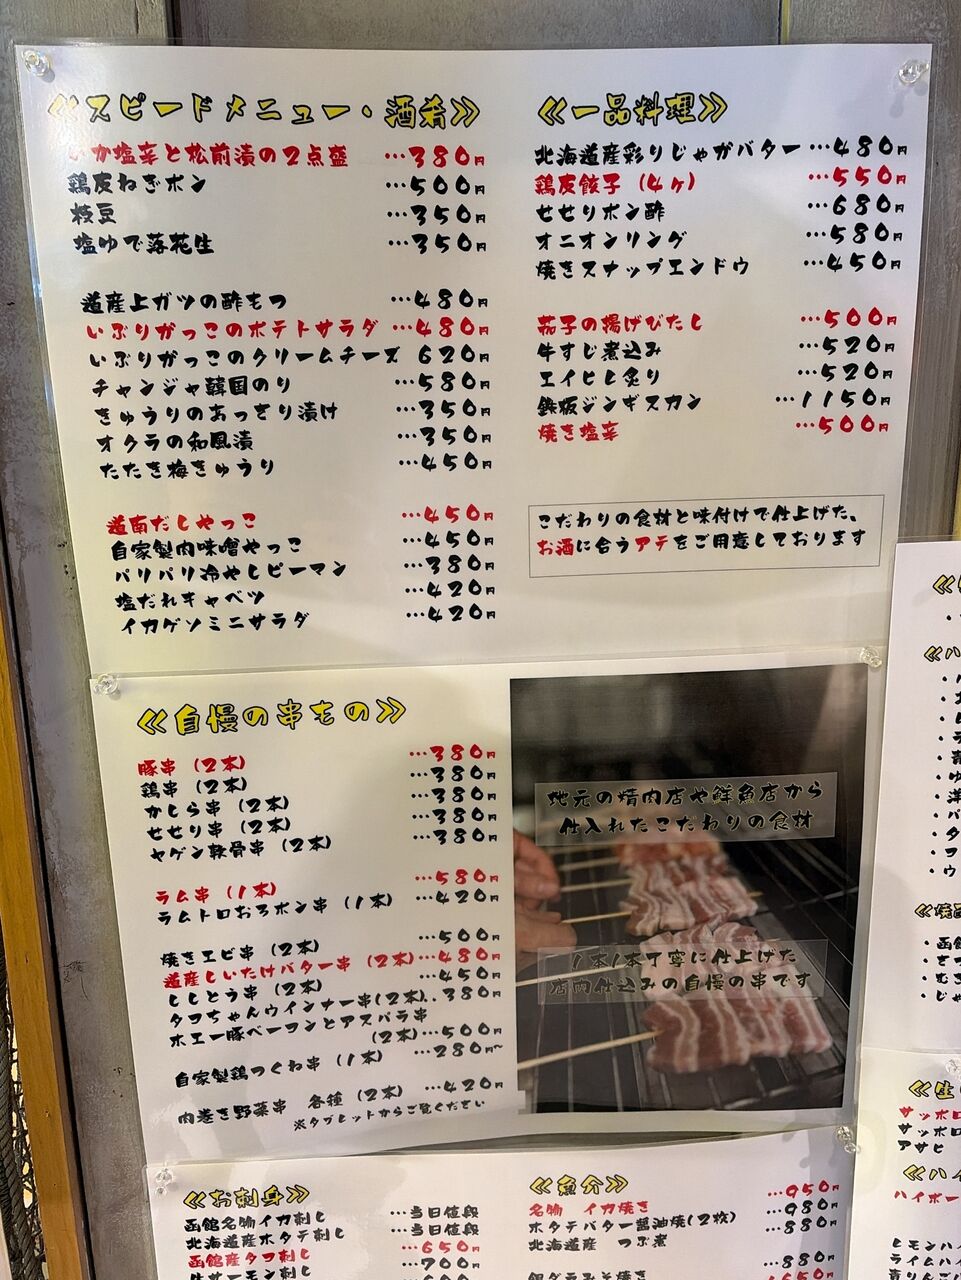 ≪スピードメニュー・酒肴≫
いか塩辛と松前漬の2点盛 …380円
鶏皮ねぎポン …500円
枝豆 …350円
塩ゆで落花生 …350円
道産上ガツの酢もつ …480円
いぶりがっこのポテトサラダ …480円
いぶりがっこのクリームチーズ 620円
チャンジャ韓国のり …580円
きゅうりのあっさり漬け …350円
オクラの和風漬 …350円
たたき梅きゅうり …450円
道南だしやっこ …450円
自家製肉味噌やっこ …450円
パリパリ冷やしピーマン …380円
塩だれキャベツ …420円
イカゲソミニサラダ …420円
≪一品料理≫
北海道産彩りじゃがバター …480円
鶏皮餃子（4ヶ） …550円
せせりポン酢 …680円
オニオンリング …580円
焼きスナップエンドウ …450円
茄子の揚げびたし …500円
牛すじ煮込み …520円
エイヒレ炙り …520円
鉄板ジンギスカン …1150円
焼き塩辛 …500円
こだわりの食材と味付けで仕上げた、
お酒に合うアテをご用意しております
≪自慢の串もの≫
豚串（2本） …380円
鶏串（2本） …380円
かしら串（2本） …380円
せせり串（2本） …380円
ヤゲン軟骨串（2本） …380円
ラム串（1本） …580円
ラムトロおろポン串（1本） …420円
焼きエビ串（2本） …500円
道産しいたけバター串（2本）…480円
ししとう串（2本） …450円
タコちゃんウインナー串(2本)..380円
ホエー豚ベーコンとアスパラ串
（2本）…500円
自家製鶏つくね串（1本） …280円～
肉巻き野菜串 各種（2本） …420円
※タブレットからご覧ください
地元の精肉店や鮮魚店から
仕入れたこだわりの食材
1本1本丁寧に仕上げた
店内仕込みの自慢の串です
≪お刺身≫
函館名物イカ刺し …当日値段
北海道産ホタテ刺し …当日値段
函館産タコ刺し …650円
生サーモン刺し …700円
≪魚介≫
名物 イカ焼き …950円
ホタテバター醤油焼(2枚) …980円
北海道産 つぶ煮 …880円
銀ダラみそ焼き …880円
…650円
≪焼酎
・函館
・さつ
・むぎ
・じゃ
≪生
サッポロ
サッポロ
アサヒ
≪ハイ
ハイボー
レモンハイ
ライムハイ